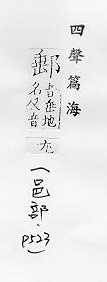 四聲篇海
音垂地
名又音
尤
(邑部．
p523)